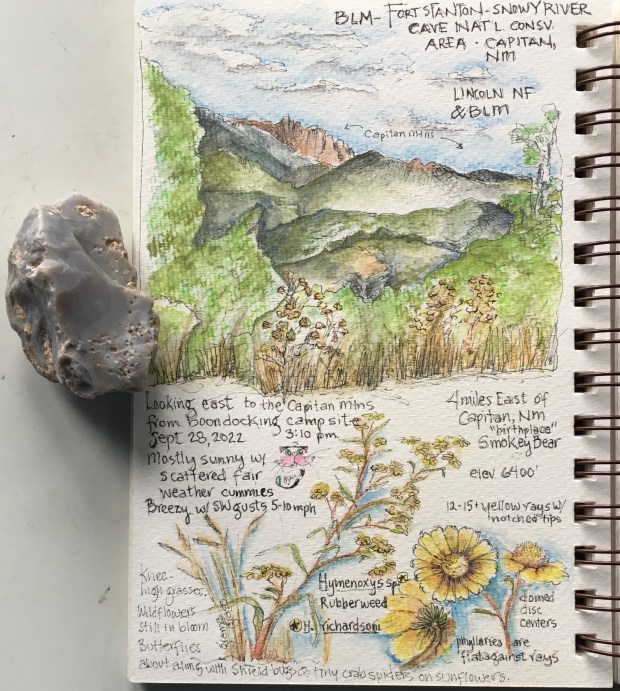 BLM- FORT STANTON-SNOWY RIVER
CAVE NAT'L CONSV.
AREA · CAPITAN,
NM
LINCOLN NF
& BLM
Capitan mtns
Looking east to the Capitan mtns
from Boondocking campsite
Sept 28, 2022 3:10 pm
Mostly sunny w/
scattered fair
weather cummies
Breezy w/ SW gusts 5-10 mph
4 miles East of
Capitan, NM
"birthplace"
Smokey Bear
elev 6400'
12-15+ yellow rays w/
notched tips
Knee-
high grasses.
Wildflowers
still in bloom
Butterflies
about along with shield bugs & tiny crab spiders on sunflowers.
Hymenoxys sp.
Rubberweed
H. richardsoni
domed
disc
centers
phyllaries are
flat against rays